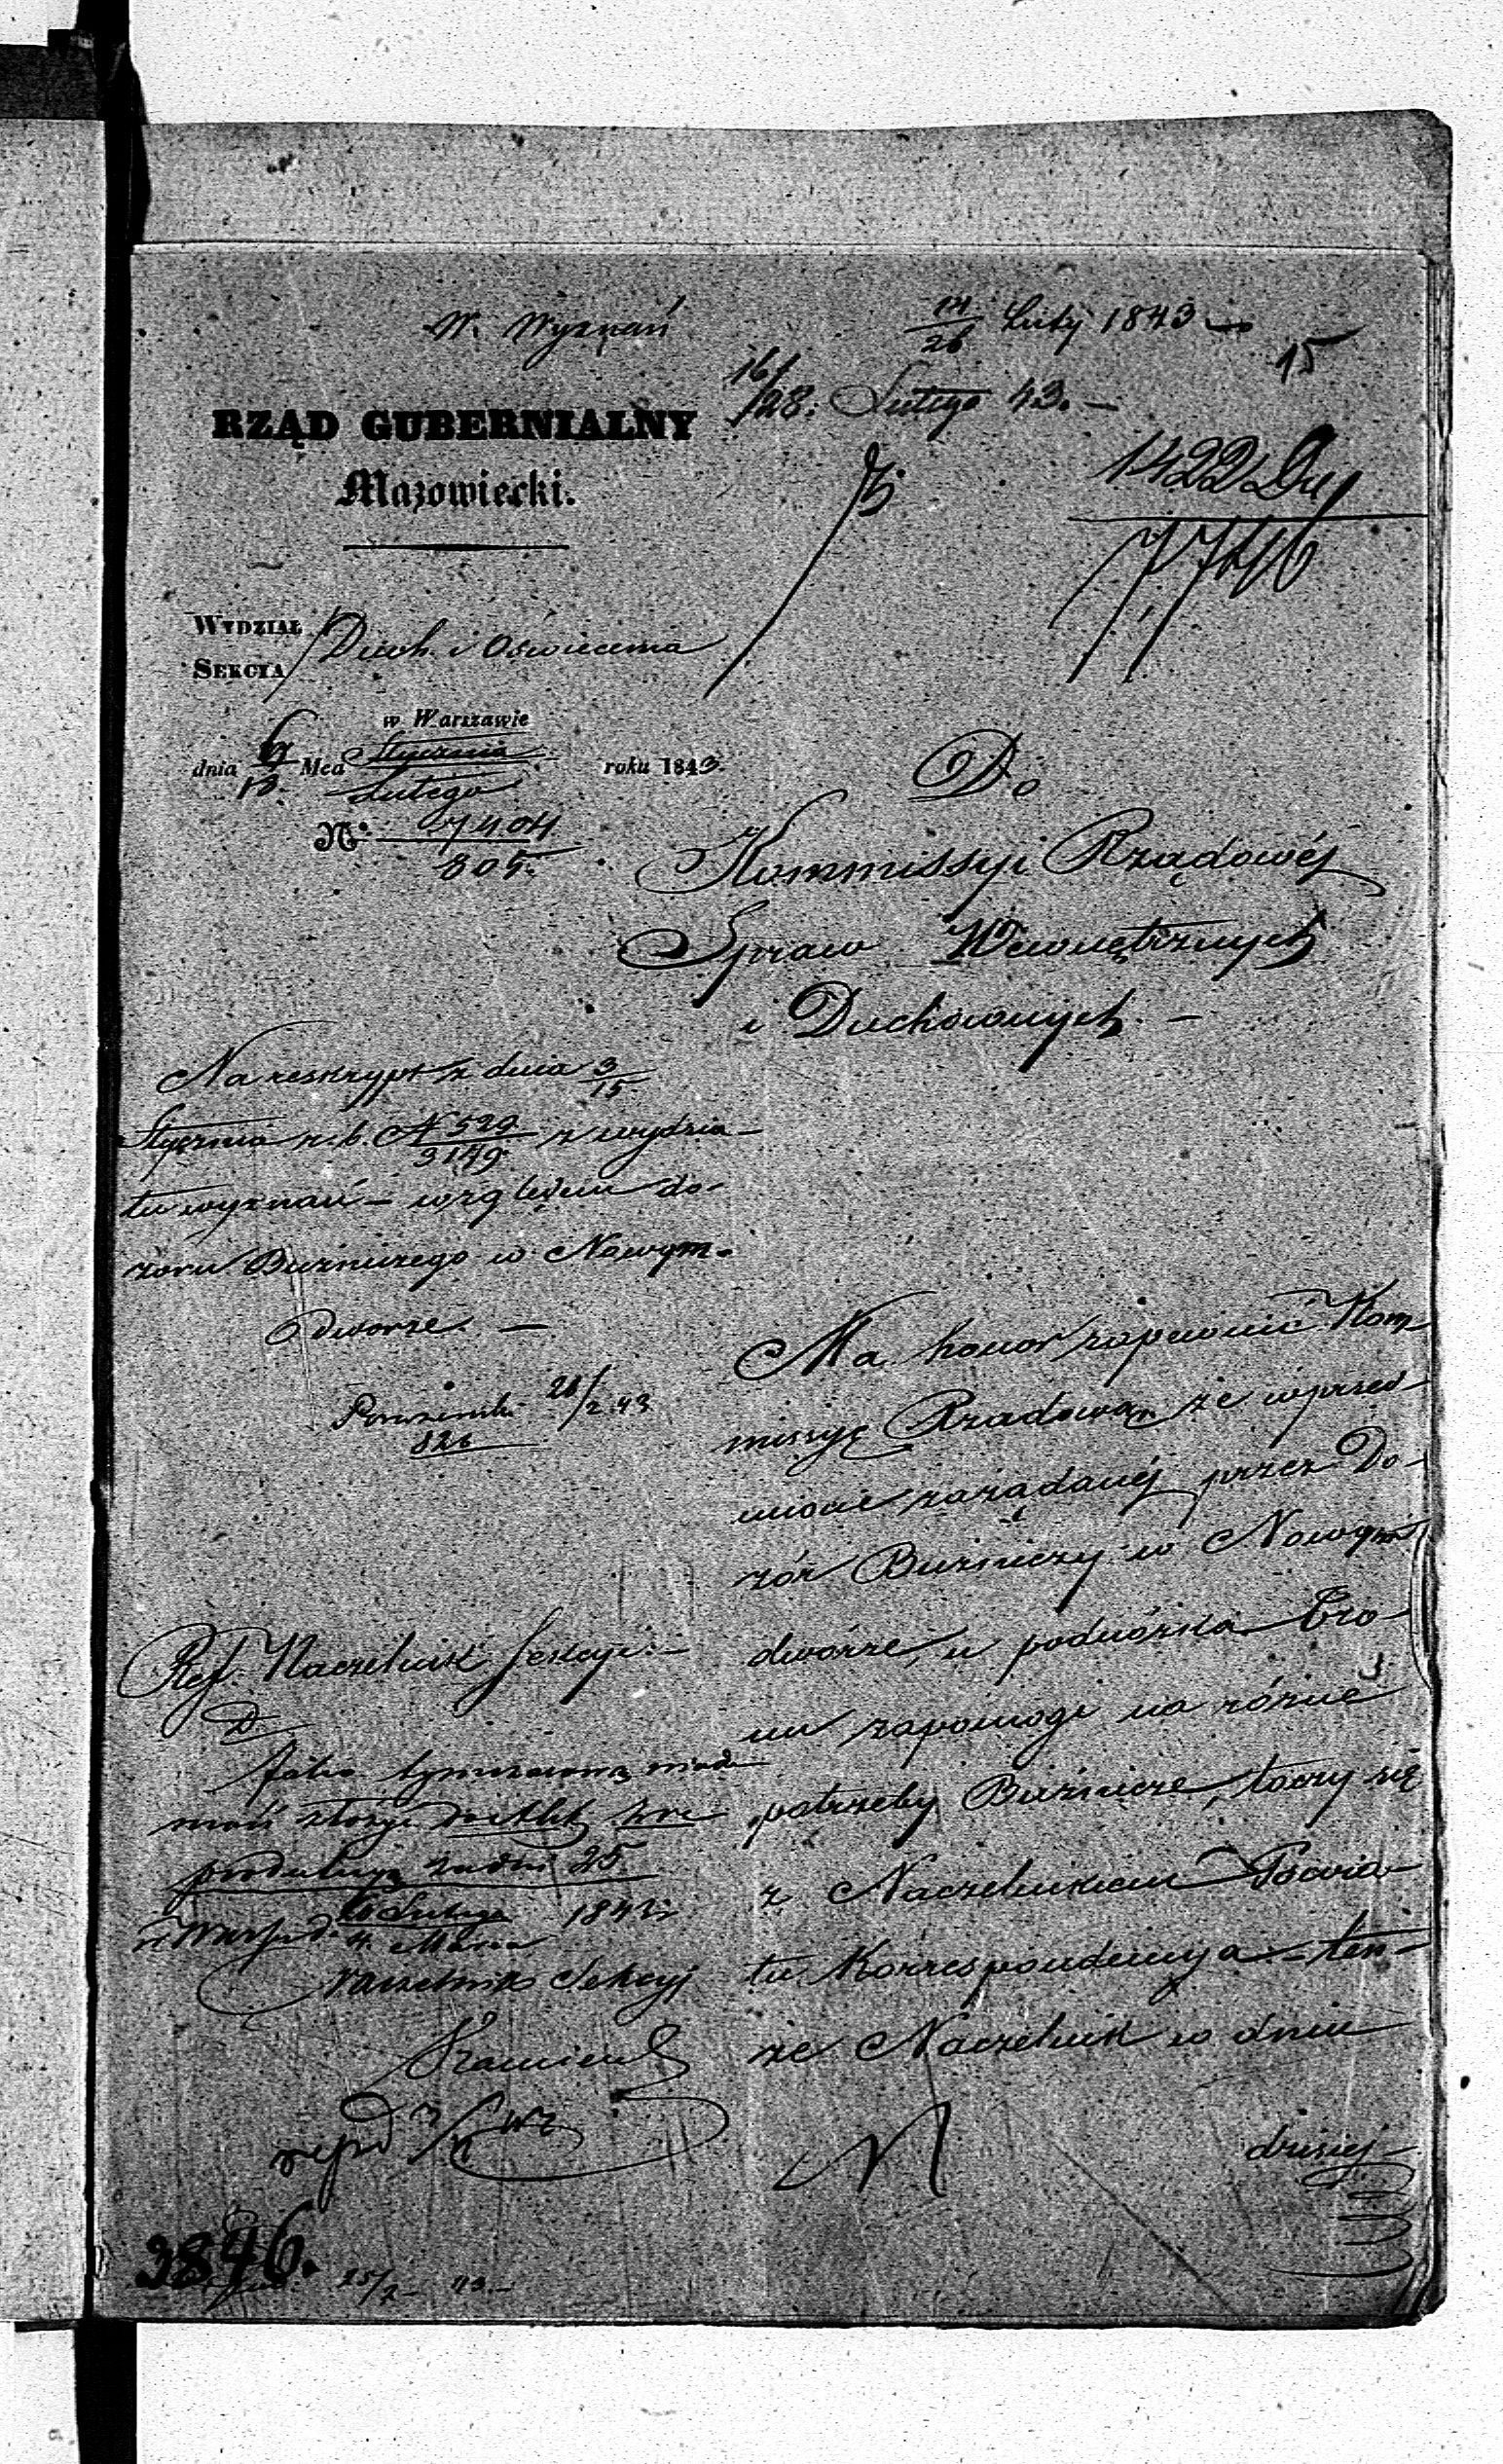 W. Wyznań
14/26 Luty 1843
15
16/28. Lutego 43. —
RZĄD GUBERNIALNY
Mazowiecki.
1422
7746
WYDZIAŁ
SEKCYA
Duch. i Oświecenia
w Warszawie
dnia /13. Mca Stycznia/Lutego roku 1843.
No. 7404/805.
Do
Kommissyi Rządowéj
Spraw Wewnętrznych
i Duchownych. —
Na reskrypt z dnia 3/15
Stycznia r. b. N 529/3149 z wydzia-
łu wyznań — względem do-
zoru Bużniczego w Nowym-
dworze. —
826
Ma honor zapewnić Kom-
missyę Rządową, że wprzed-
miocie zażądanéj przez Do-
zór Bużniczy w Nowym
dworze, u podwórka Tro-
nu zapomogi na różne
potrzeby Bużnicze, toczy się
z Naczelnikiem Powia-
tu Korrespondencya — ten-
że Naczelnik w dniu
dzisiej-
Ref. Naczelnik Sekcyi. —
Jako tymczasową wiado-
mość złożyć do Akt
za dni 25
Lutego 1843
4. Marca
Naczelnik Sekcyj
3846.
25/2 — 43. —